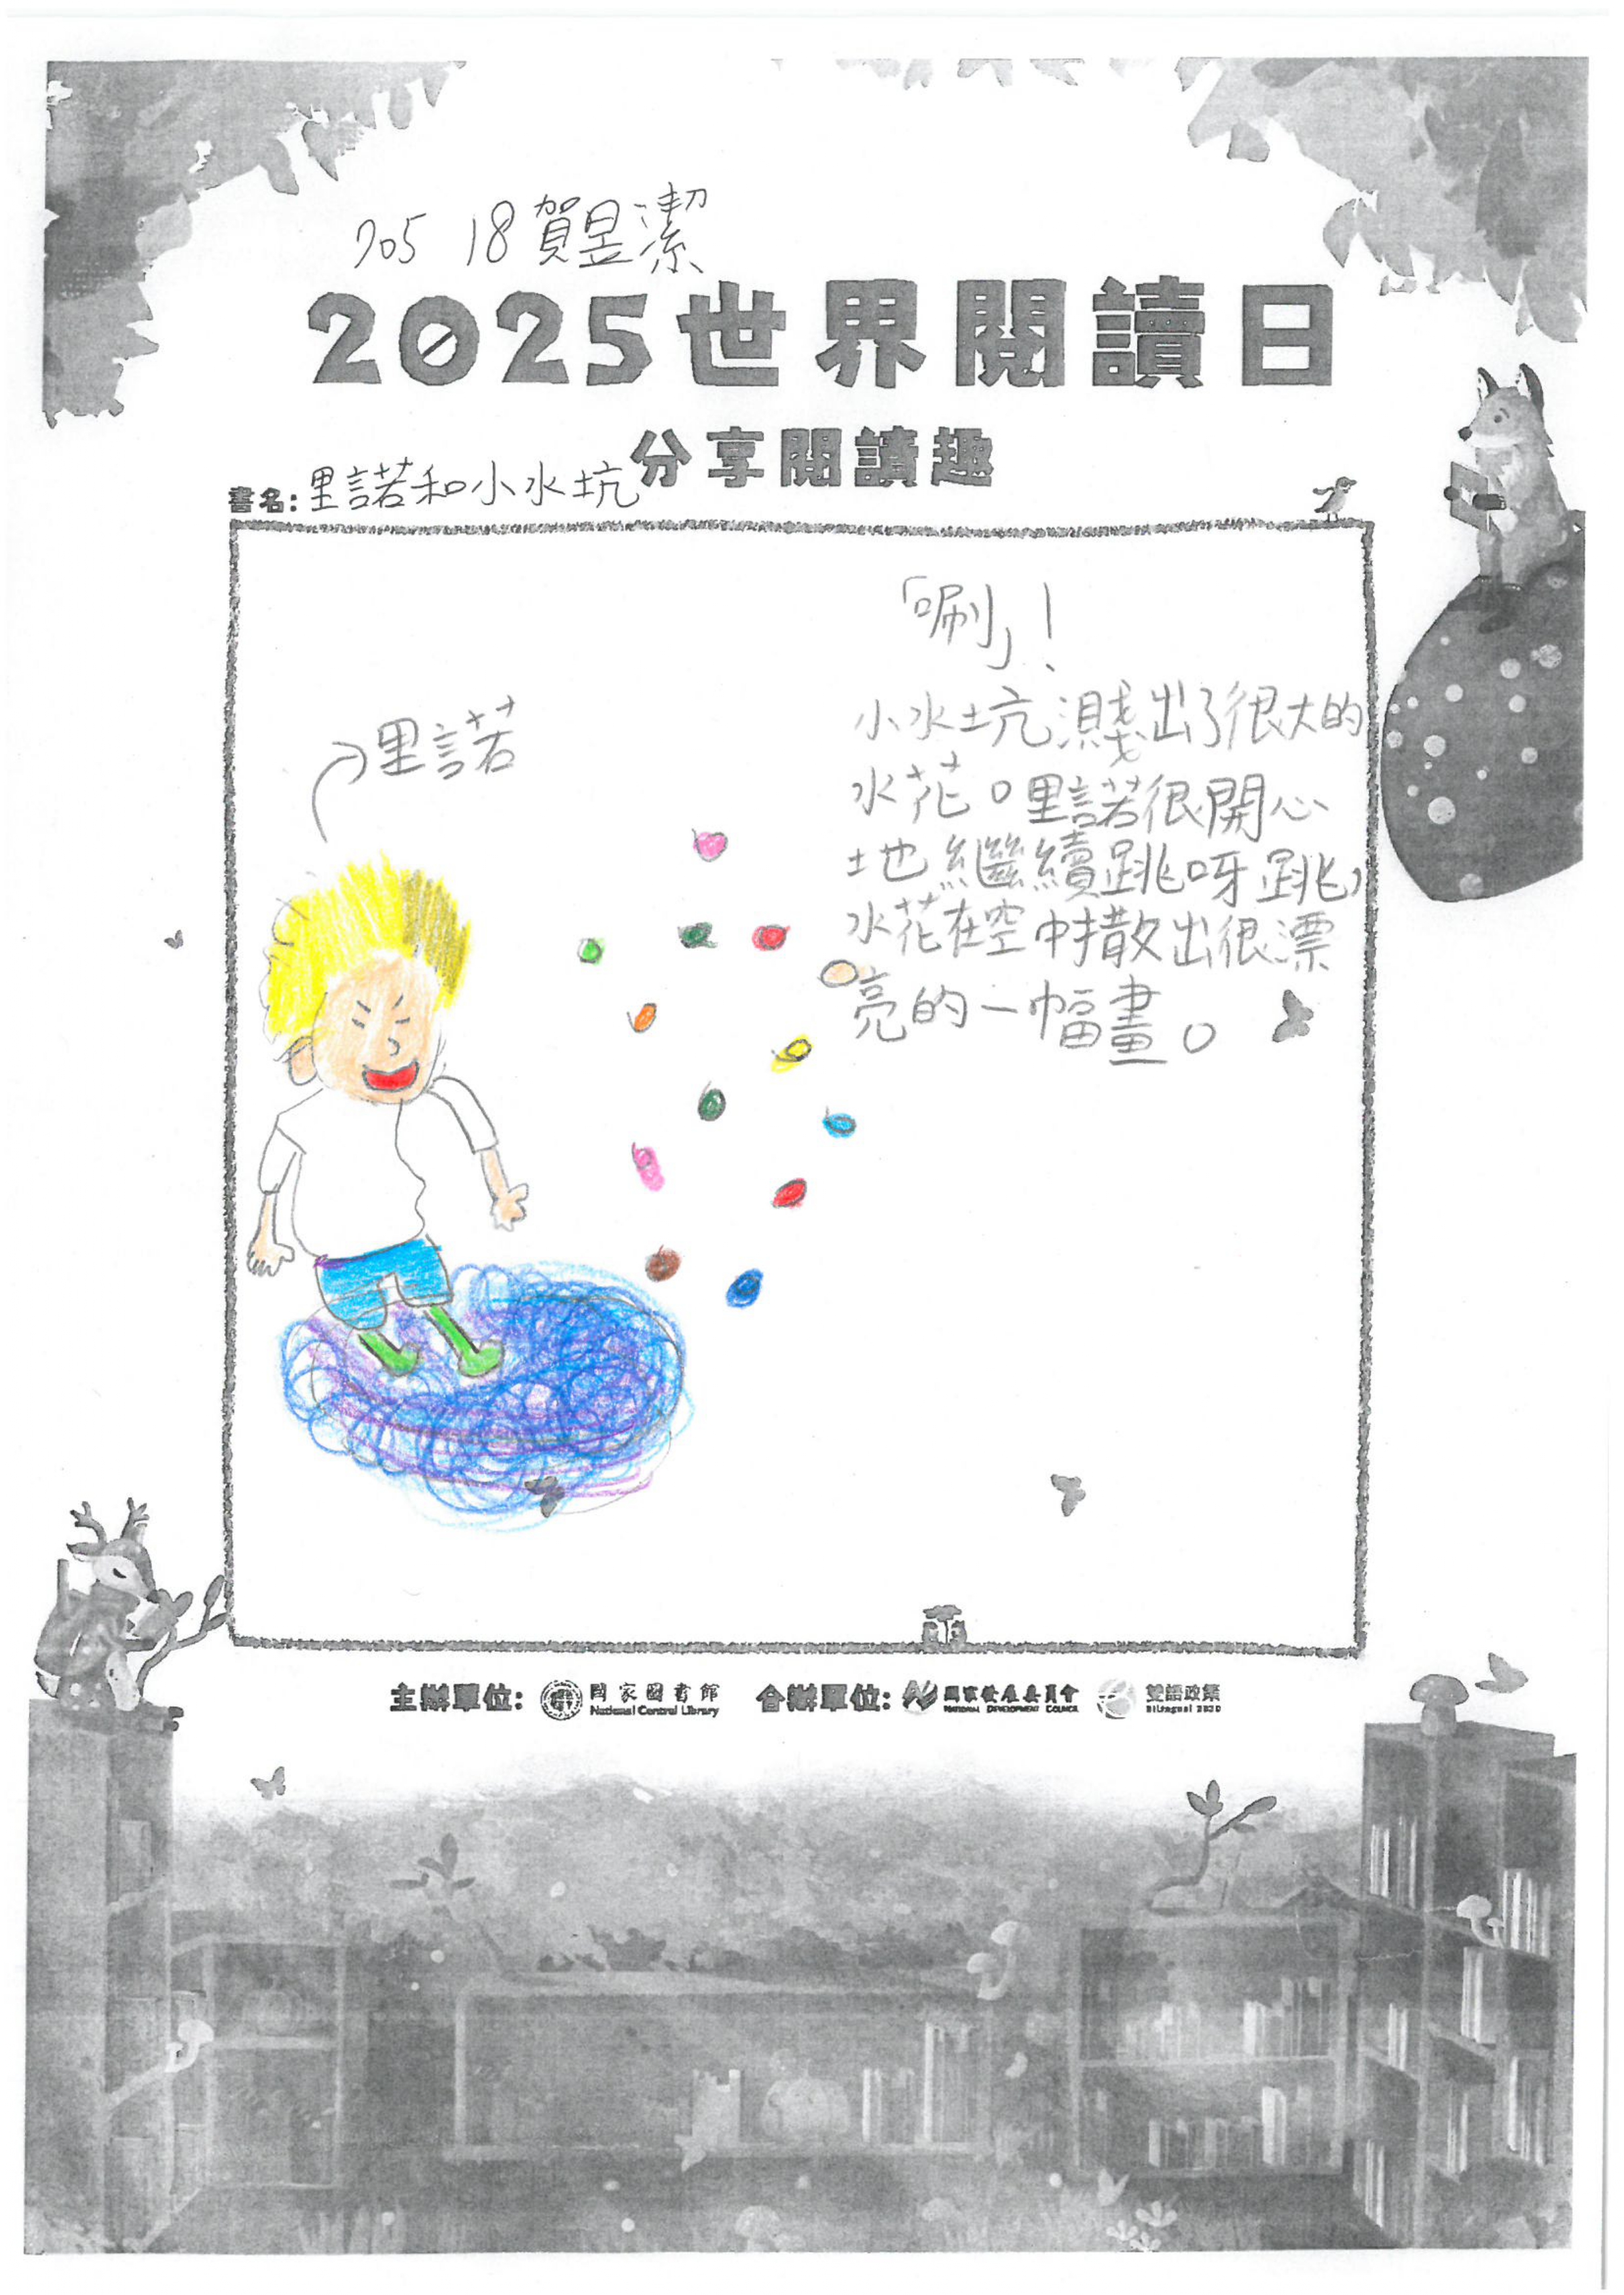 705 18 賀昱潔
2025世界閱讀日
分享閱讀趣
書名：里諾和小水坑
「唰」！
小水坑濺出了很大的
水花。里諾很開心
地繼續跳呀跳，
水花在空中撒出很漂
亮的一幅畫。
里諾
主辦單位： 國家圖書館 National Central Library 合辦單位： 國家發展委員會 NATIONAL DEVELOPMENT COUNCIL 雙語政策 Bilingual 2030